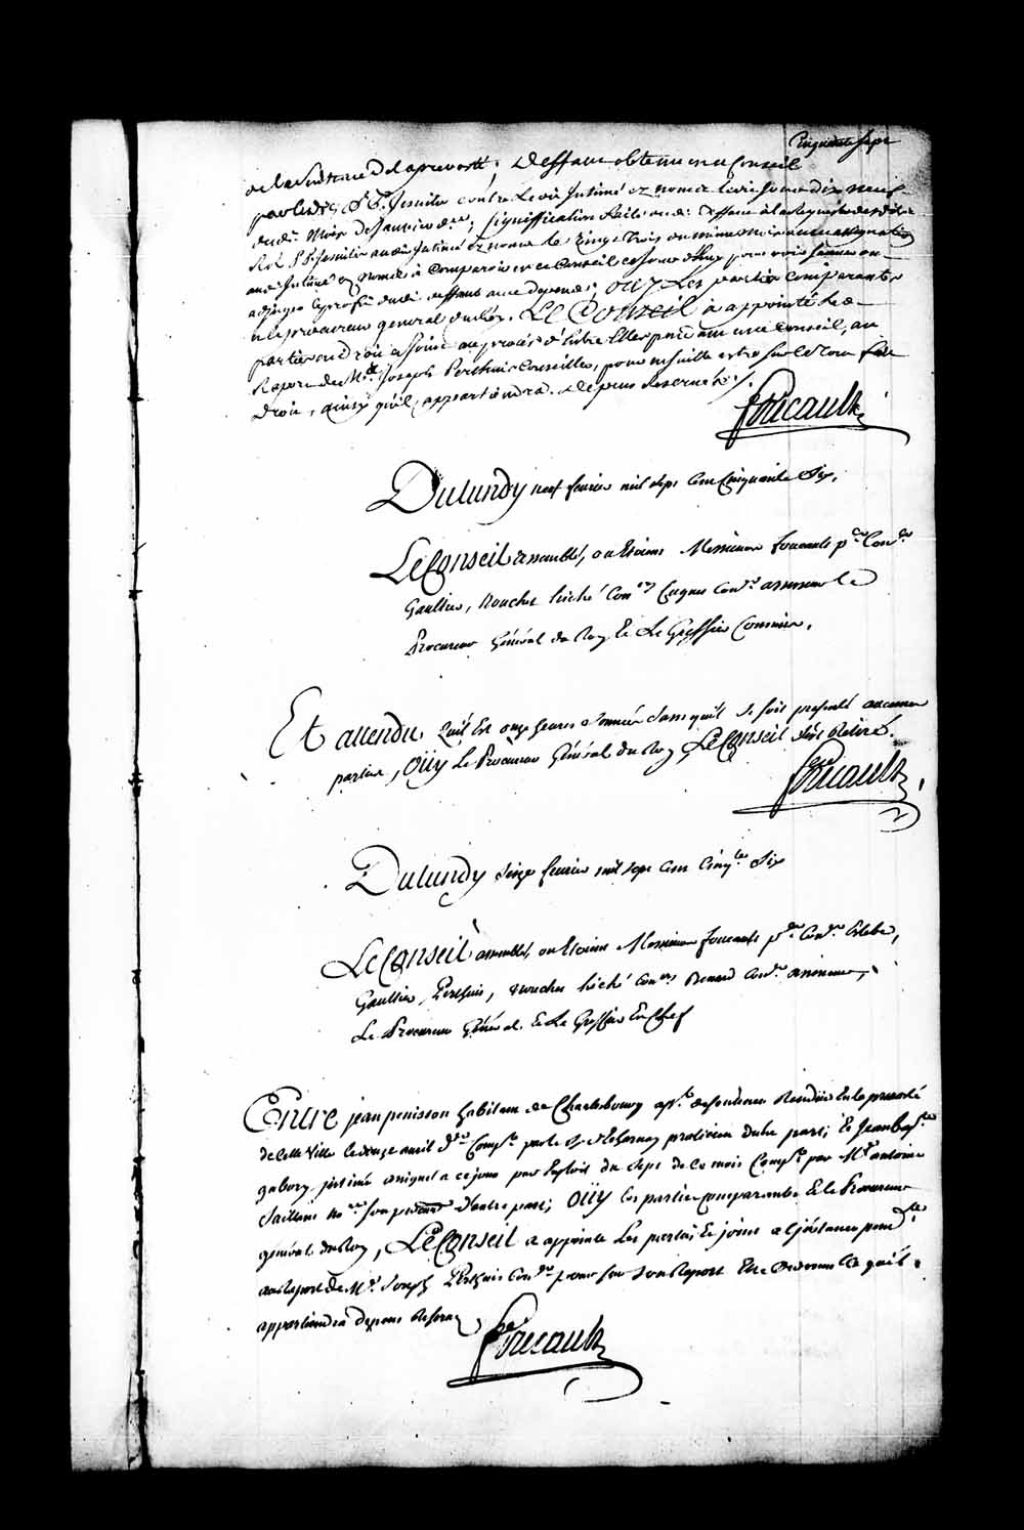 Cinquante Sept
de la Sentence de la prevosté; deffaut obtenu en ce Conseil
par led. S. Jesuites contre led. Intimé ez nom le dix neuf
dud. mois de Janvier d.er; signiffication faite dud. deffaut à la Requeste desd.
R.ds P. Jesuites aud. Intimé ez noms le vingt trois du même mois avec assignation
aud. Intimé ez noms à Comparoir en ce Conseil ce jourd'huy pour voir
adjuger le profit dud. deffaut avec depens; Oüy Les parties comparantes
le procureur general du Roy. Le Conseil a appointé les
parties en droit à Ecrire et produire pardevant en ce Conseil, au
Raport de M.e Joseph Perthuis Conseiller, pour ensuitte estre sur le tout fait
droit, ainsy qu'il appartiendra. depens Reservés ./.
Foucault
Du Lundy neuf fevrier mil sept Cent Cinquante Six.
Le Conseil assemblé, ou Etoient Messieurs foucault p.er Con.er
Gaultier, Nouchet Liché Con.ers Cugnet Con.er assesseur le
Procureur Général du Roy Et Le Greffier Commis.
Et attendu quil Est onze heures Sonnées sans quil se soit presenté aucunes
parties, Oüy Le Procureur Général du Roy, Le Conseil s'est Retiré.
Foucault
Du Lundy Seize fevrier mil sept cent cinq.te Six
Le Conseil assemblé, ou Etoient Messieurs foucault p.er Con.er
Gaultier, Perthuis, Nouchet Liché Con.ers Benard Con.er assesseur,
Le Procureur Général Et Le Greffier En Chef
Entre jean penisson habitant de Charlesbourg app.t de sentence Rendüe En la prevosté
de Cette Ville le douze avril d.er Comp.t par le S. proticien d'une part; Et Jean Bap.te
gabory intimé assigné a ce jour par Exploit du sept de ce mois Comp.t par M.e antoine
Saillant no.re d'autre part; Oüy les parties comparantes Et le Procureur
général du Roy, Le Conseil a appointé les parties
au raport de M.e Joseph Perthuis Con.er pour sur son Raport Etre Ordonné Ce qu'il
appartiendra depens Reservés
Foucault